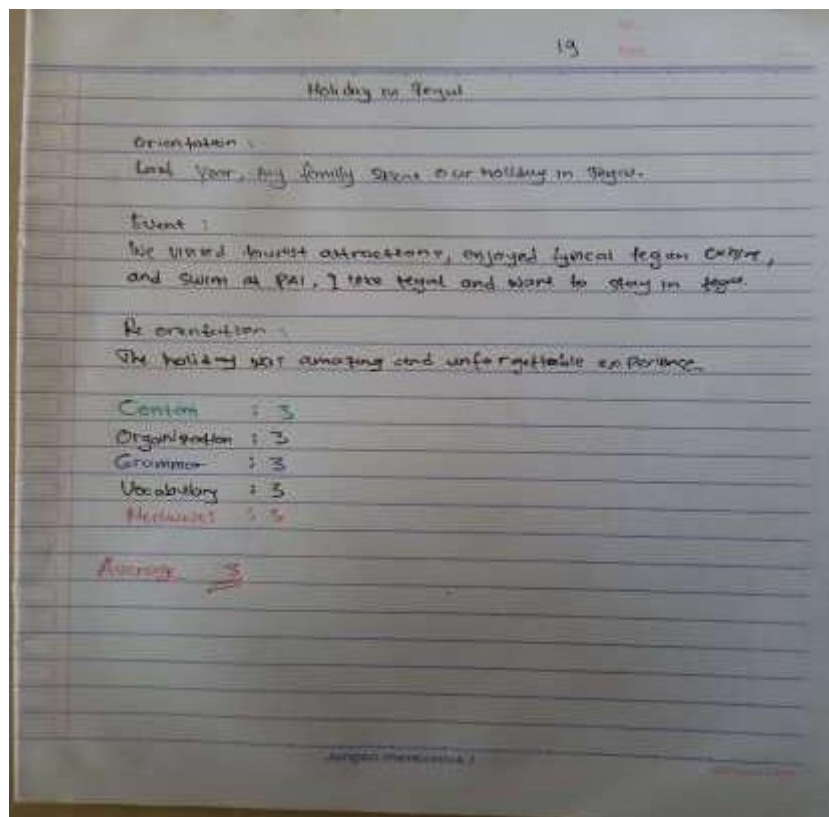 19
Holiday in Tegal
Orientation :
Last Year, my family spent our holiday in Tegal.
Event :
We visited tourist attractions, enjoyed typical tegal
and swim at PAI, I like tegal and want to stay in tegal.
Re orentation :
The holiday was amazing and unforgettable experience.
Content : 3
Organization : 3
Grammar : 3
Vocabulary : 3
Mechanics : 3
Average 3